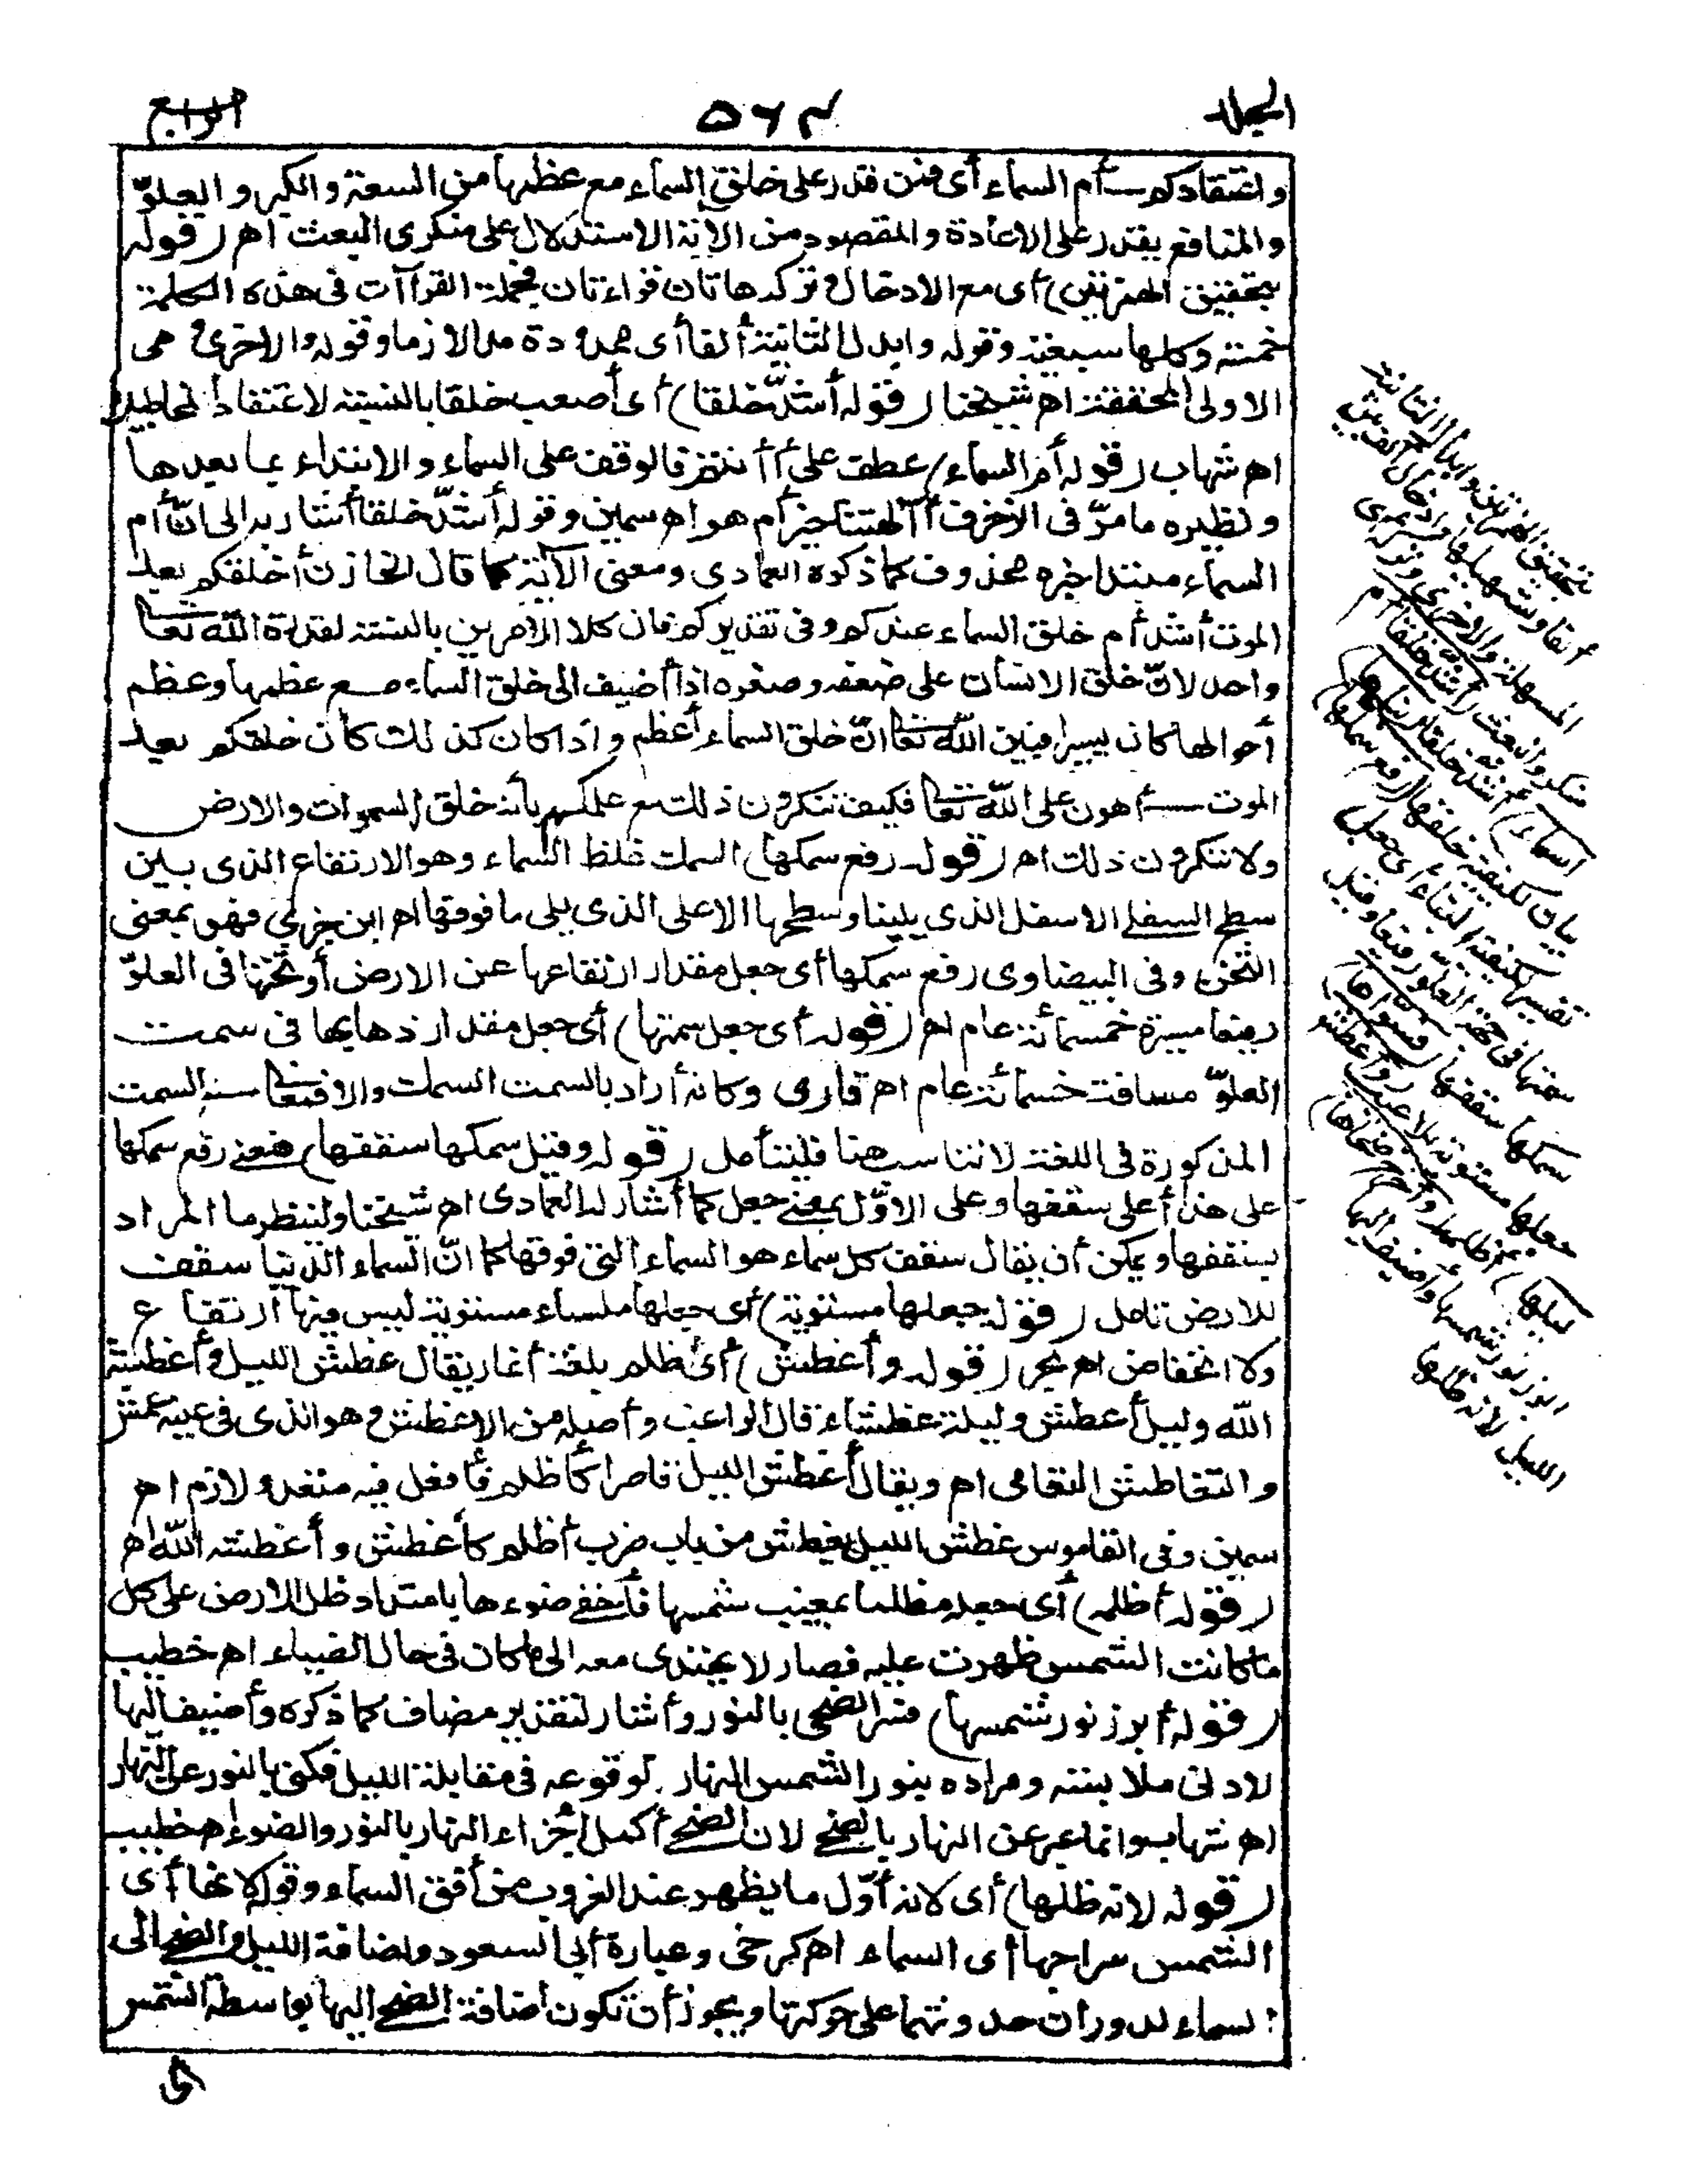 المجلد
٥٦٣
الرابع
واعتقادكم أم السماء أى فمن قدر على خلق السماء مع عظمها من السعة والكبر والعلوّ
والمنافع يقدر على الاعادة والمقصود من الآية الاستدلال على منكرى البعث اهـ (قوله
بتحقيق الهمزتين) أى مع الادخال وتركه هاتان قراءتان فجملة القراآت فى هذه الكلمة
خمسة وكلها سبعية وقوله وابدال الثانية ألفا أى ممدودة مدا لازما وقوله والاخرى هى
الاولى المحققة اهـ شيخنا (قوله أشدّ خلقا) أى أصعب خلقا بالنسبة لاعتقاد المخاطبين
اهـ شهاب (قوله أم السماء) عطف على أأنتم فالوقف على السماء والابتداء بما بعدها
ونظيره ما مرّ فى الزخرف أآلهتنا خير أم هو اهـ سمين وقوله أشدّ خلقا أشار به الى انّ أم
السماء مبتدا خبره محذوف كما ذكره العمادى ومعنى الآية كما قال الخازن أخلقكم بعد
الموت أشد أم خلق السماء عندكم وفى تقديركم فان كلا الامرين بالنسبة لقدرة الله تعا
واحد لانّ خلق الانسان على ضعفه وصغره اذا أضيف الى خلق السماء مع عظمها وعظم
أحوالها كان يسيرا فبين الله تعا انّ خلق السماء أعظم واذا كان كذلك كان خلقكم بعد
الموت أهون على الله تعا فكيف تنكرون ذلك مع علمكم بأنه خلق السموات والارض
ولا تنكرون ذلك اهـ (قوله رفع سمكها) السمك غلظ السماء وهو الارتفاع الذى بين
سطح السفلى الاسفل الذى يلينا وسطحها الاعلى الذى يلى ما فوقها اهـ ابن جزى فهو بمعنى
الثخن وفى البيضاوى رفع سمكها أى جعل مقدار ارتفاعها عن الارض أو ثخنها فى العلوّ
رفيعا مسيرة خمسمائة عام اهـ (قوله أى جعل سمتها) أى جعل مقدار ذهابها فى سمت
العلوّ مسافة خمسمائة عام اهـ قارى وكانه أراد بالسمت السمك والا فمعا نى السمت
المذكورة فى اللغة لا تناسب هنا فليتأمل (قوله وقيل سمكها سقفها) فمعنى رفع سمكها
على هذا أعلى سقفها وعلى الاوّل بمعنى جعل كما أشار له العمادى اهـ شيخنا ولينظر ما المراد
بسقفها ويمكن أن يقال سقف كل سماء هو السماء التى فوقها كما انّ السماء الدنيا سقف
للارض تامل (قوله جعلها مستوية) أى جعلها ملساء مستوية ليس فيها ارتفاع
ولا انخفاض اهـ بحر (قوله وأغطش) أى أظلم بلغة أنمار يقال غطش الليل وأغطشه
الله وليل أغطش وليلة غطشاء قال الراغب وأصله من الاغطش وهو الذى فى عينه عمش
والتغاطش التعامى اهـ ويقال أغطش الليل قاصرا كأظلم فأفعل فيه متعد ولازم اهـ
سمين وفى القاموس غطش الليل يغطش من باب ضرب أظلم كأغطش وأغطشه الله اهـ
(قوله أظلمه) أى جعله مظلما بمغيب شمسها فأخفى ضوءها بامتداد ظل الارض على كل
ما كانت الشمس ظهرت عليه فصار لا يهتدى معه الى ما كان فى حال الضياء اهـ خطيب
(قوله أبرز نور شمسها) فسر الضحى بالنور وأشار لتقدير مضاف كما ذكره وأضيف اليها
لادنى ملابسته ومراده بنور الشمس النهار لوقوعه فى مقابلة الليل فكنى بالنور عن النهار
اهـ شهاب وانما عبر عن النهار بالضحى لان الضحى أكمل أجزاء النهار بالنور والضوء اهـ خطيب
(قوله لانه ظلها) أى لانه أوّل ما يظهر عند الغروب من أفق السماء وقوله لانها أى
الشمس سراجها أى السماء اهـ كرخى وعبارة أبى السعود واضافة الليل والضحى الى
السماء لدوران حدوثهما على حركتها ويجوز أن تكون اضافة الضحى اليها بواسطة الشمس
أى
بتحقيق الهمزتين وابدال الثانية
ألفا وتسهيلها وادخال ألف بين
المسهلة والاخرى وتركه أى
منكرو البعث (أشد خلقا أم
السماء) أشد خلقا (بناها)
بيان لكيفية خلقها (رفع سمكها)
تفسير لكيفية البناء أى جعل
سمتها فى جهة العلو رفيعا وقيل
سمكها سقفها (فسواها)
جعلها مستوية بلا عيب (وأغطش
ليلها) أظلمه (وأخرج ضحاها)
أبرز نور شمسها وأضيف اليها
الليل لانه ظلها